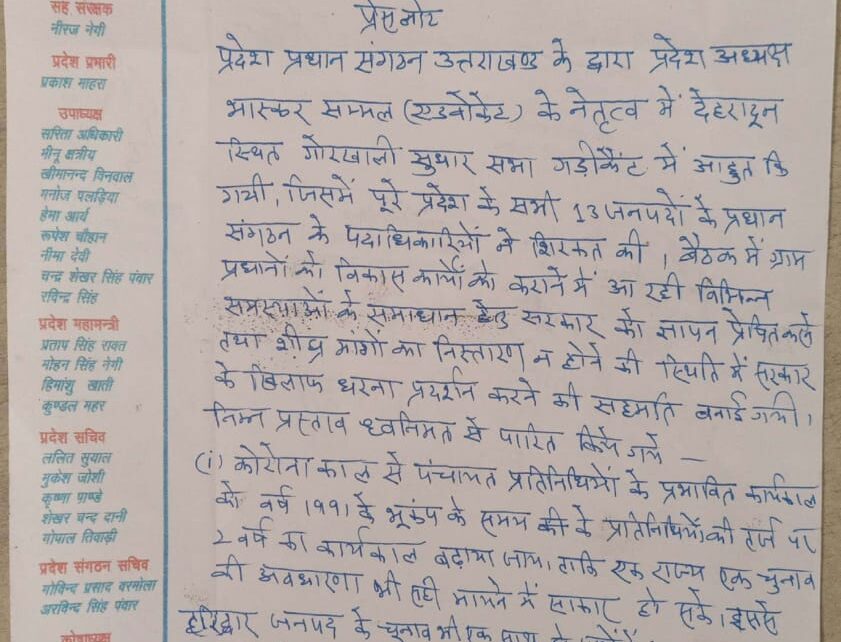 सह संरक्षक
नीरज नेगी
प्रदेश प्रभारी
प्रकाश माहरा
उपाध्यक्ष
सरिता अधिकारी
मीनू क्षत्रीय
खीमानन्द विनवाल
मनोज पलड़िया
हेमा आर्य
रूपेश चौहान
नीमा देवी
चन्द्र शेखर सिंह पंवार
रविन्द्र सिंह
प्रदेश महामन्त्री
प्रताप सिंह रावत
मोहन सिंह नेगी
हिमांशु खाती
कुण्डल महर
प्रदेश सचिव
ललित सुयाल
मुकेश जोशी
कृष्णा पाण्डे
शेखर चन्द दानी
गोपाल तिवाड़ी
प्रदेश संगठन सचिव
गोविन्द प्रसाद बरमोला
अरविन्द सिंह पंवार
कोषाध्यक्ष
प्रेस नोट
प्रदेश प्रधान संगठन उत्तराखण्ड के द्वारा प्रदेश अध्यक्ष
भास्कर सम्मल (एडवोकेट) के नेतृत्व में देहरादून
स्थित गोरखाली सुधार सभा गड़ीकैंट में आहुत कि
गयी, जिसमें पूरे प्रदेश के सभी 13 जनपदों के प्रधान
संगठन के पदाधिकारियों ने शिरकत की। बैठक में ग्राम
प्रधानों को विकास कार्यों को कराने में आ रही विभिन्न
समस्याओं के समाधान हेतु सरकार को ज्ञापन प्रेषित करने
तथा शीघ्र मांगों का निस्तारण न होने की स्थिति में सरकार
के खिलाफ धरना प्रदर्शन करने की सहमति बनाई गयी।
निम्न प्रस्ताव ध्वनिमत से पारित किये गये —
(i) कोरोना काल से पंचायत प्रतिनिधियों के प्रभावित कार्यकाल
को वर्ष १९९१ के भूकंप के समय की के प्रतिनिधियों की तर्ज पर
2 वर्ष का कार्यकाल बढ़ाया जाय। ताकि एक राज्य एक चुनाव
की अवधारणा भी सही मायने में साकार हो सके। इससे
हरिद्वार जनपद के चुनाव भी एक साथ